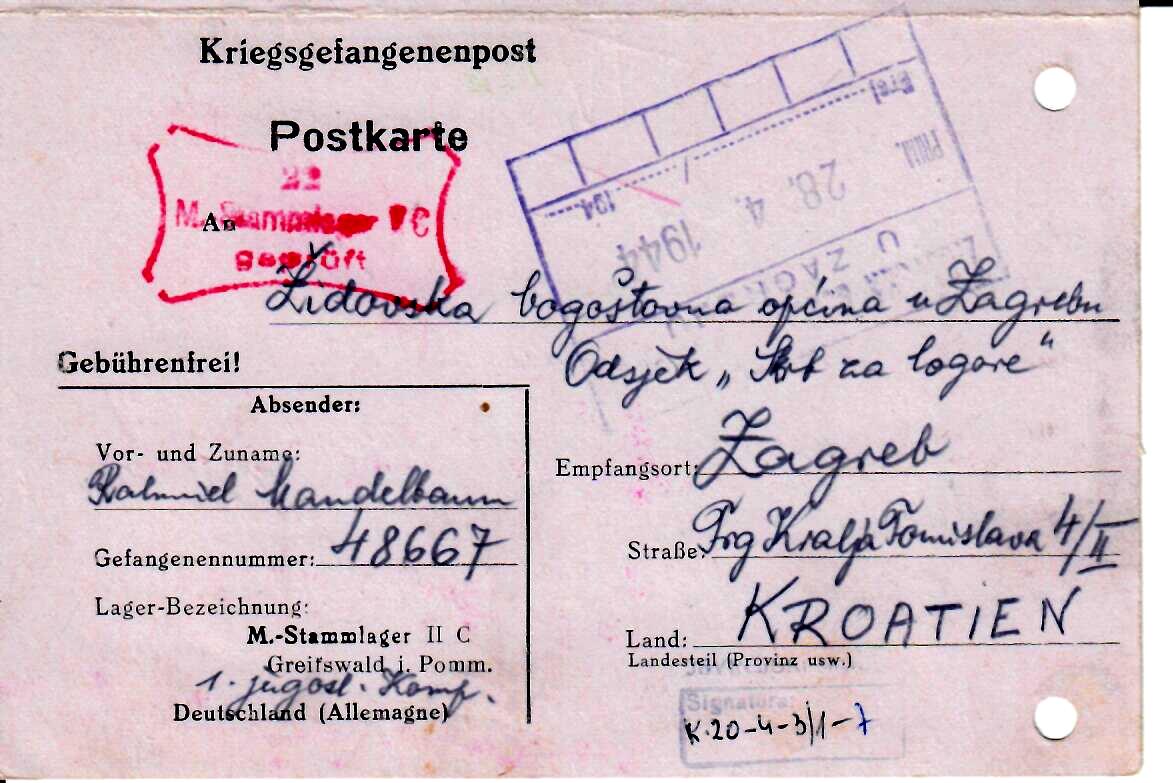 Kriegsgefangenenpost
Postkarte
22
An
M.-Stammlager
geprüft
PRIM. 28. 4. 1944
194
U
Židovska bogoštovna općina u Zagrebu
Odsjek „Skrb za logore"
Gebührenfrei!
Absender:
Vor- und Zuname:
Rahmiel Mandelbaum
Gefangenennummer: 48667
Lager-Bezeichnung:
M.-Stammlager II C
Greifswald i. Pomm.
1. jugosl. Komp.
Deutschland (Allemagne)
Empfangsort: Zagreb
Straße: Trg Kralja Tomislava 4/II
Land: KROATIEN
Landesteil (Provinz usw.)
Signatura:
K.20-4-3/1-7